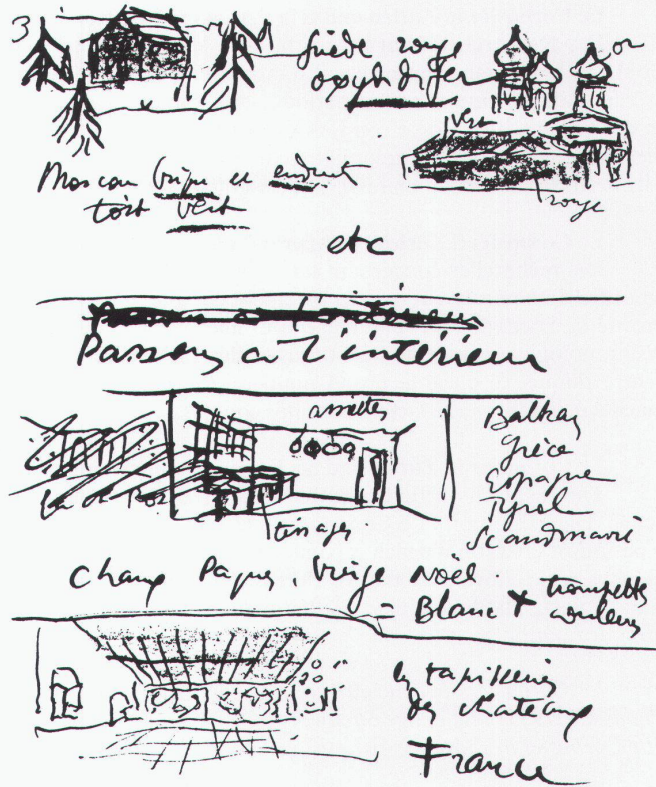 3
Suède rouge
oxyd de fer
or
vert
rouge
Moscou brique et enduit
toit vert
etc
Passons à l'intérieur
Passons à l'intérieur
assiettes
tissages
Balkans
Grèce
Espagne
Tyrol
Scandinavie
Chaux Pâques, Vierge Noël
= Blanc + trompettes
couleurs
les tapisseries
des chateaux
France